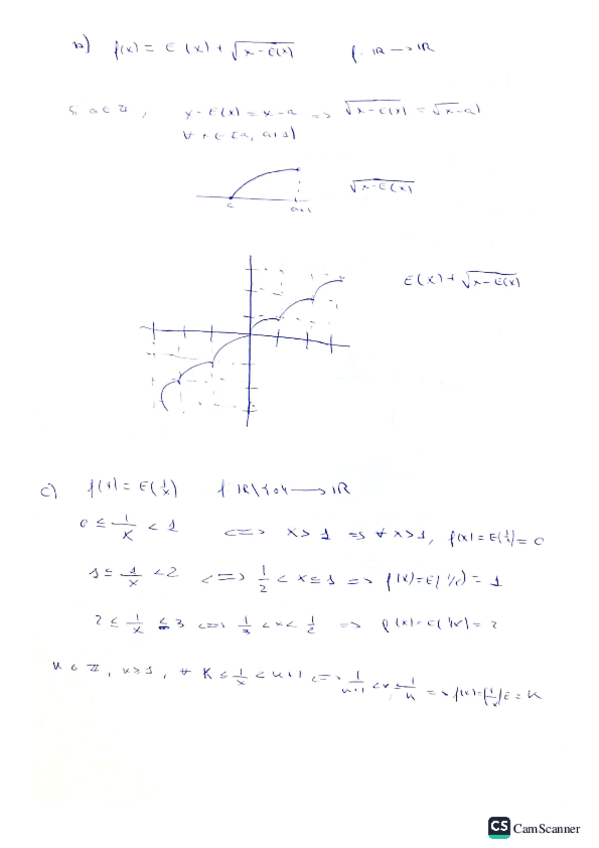 b) f(x) = E(x) + √(x-E(x)) f: ℝ → ℝ
Si a ∈ ℤ, x-E(x) = x-a => √(x-E(x)) = √(x-a)
∀ x ∈ [a, a+1)
√(x-E(x))
a a+1
E(x) + √(x-E(x))
c) f(x) = E(1/x) f: ℝ\{0} → ℝ
0 ≤ 1/x < 1 <=> x > 1 => ∀ x > 1, f(x) = E(1/x) = 0
1 ≤ 1/x < 2 <=> 1/2 < x ≤ 1 => f(x) = E(1/x) = 1
2 ≤ 1/x ≤ 3 <=> 1/3 < x < 1/2 => f(x) = E(1/x) = 2
K ∈ ℤ, K ≥ 1, ∀ K ≤ 1/x < K+1 <=> 1/K+1 < x ≤ 1/K => f(x) = K
CS CamScanner